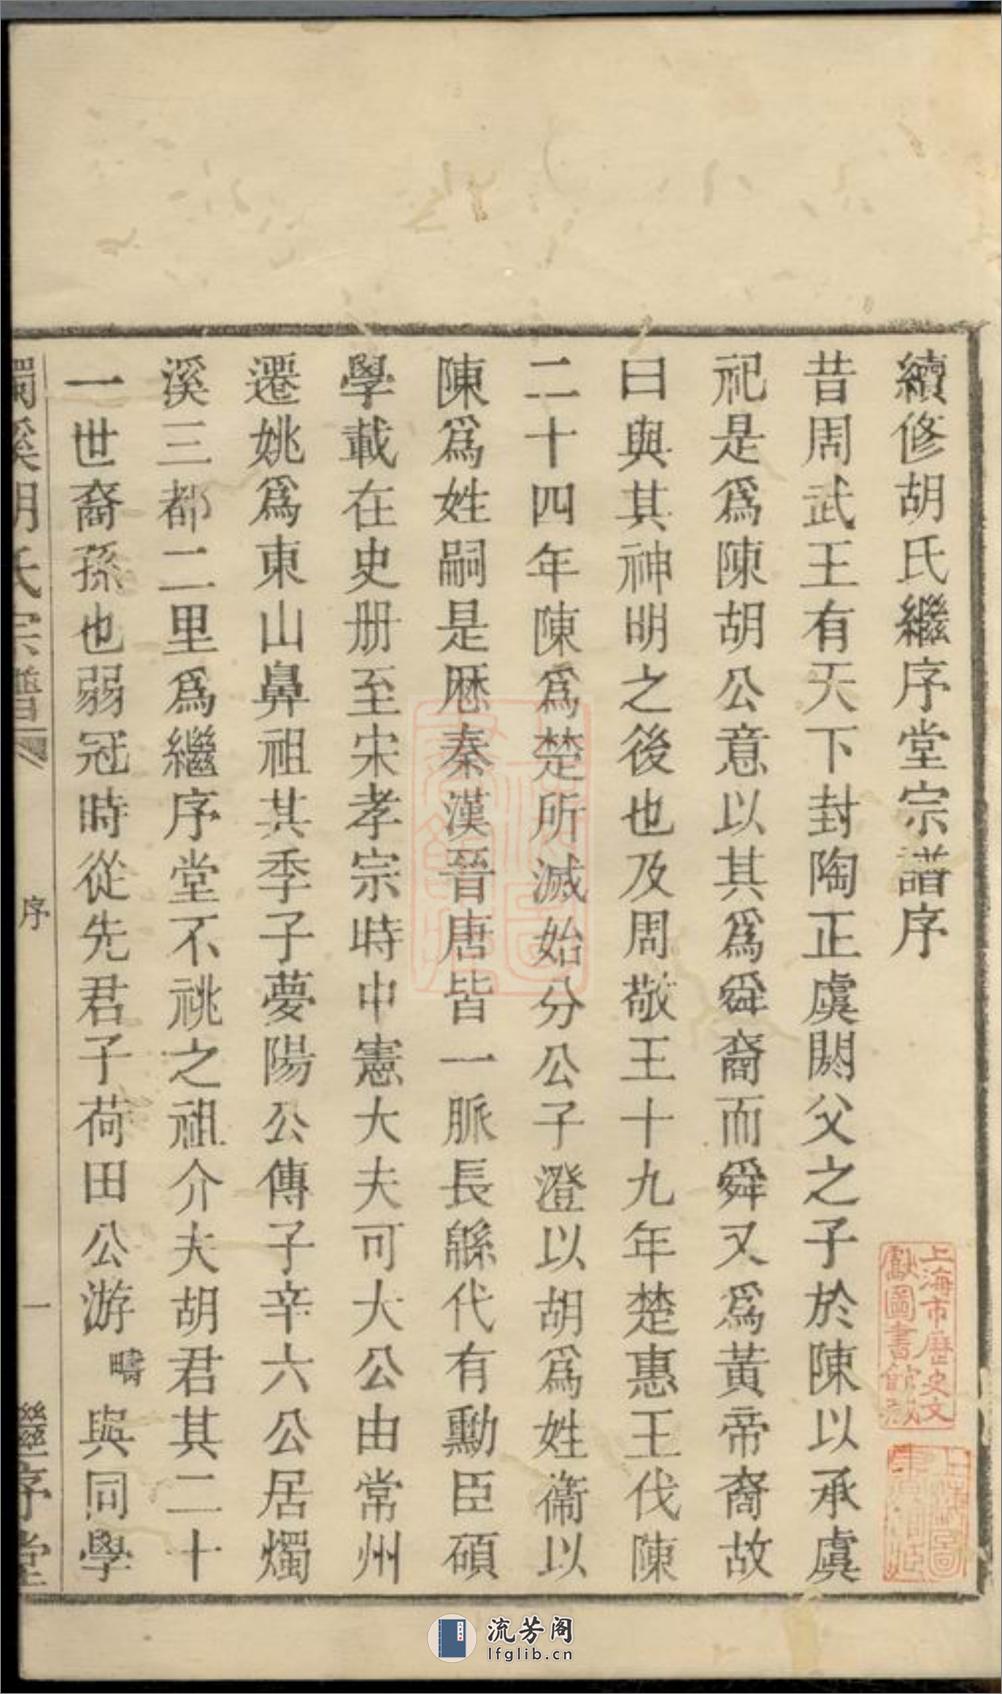 續修胡氏繼序堂宗譜序
昔周武王有天下封陶正虞閼父之子於陳以承虞
祀是爲陳胡公意以其爲舜裔而舜又爲黃帝裔故
曰與其神明之後也及周敬王十九年楚惠王伐陳
二十四年陳爲楚所滅始分公子澄以胡爲姓衞以
陳爲姓嗣是厯秦漢晉唐皆一脈長緜代有勳臣碩
學載在史册至宋孝宗時中憲大夫可大公由常州
遷姚爲東山鼻祖其季子夢陽公傳子辛六公居燭
溪三都二里爲繼序堂不祧之祖介夫胡君其二十
一世裔孫也弱冠時從先君子荷田公游疇與同學
燭溪胡氏宗譜
序
一
繼序堂
上海市歷史文
獻圖書館藏
流芳阁
lfglib.cn